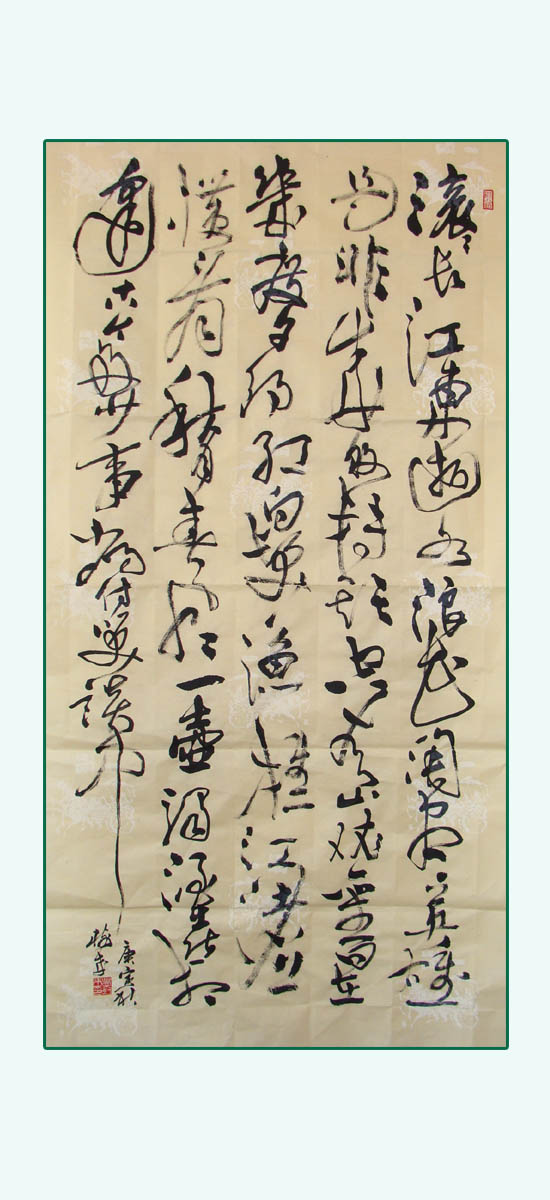 滚滚长江東逝水浪花淘尽英雄
是非成敗转頭空青山依舊在
幾度夕阳红白髮漁樵江渚上
惯看秋月春风一壶濁酒喜相
逢古今多少事都付笑谈中
庚寅秋